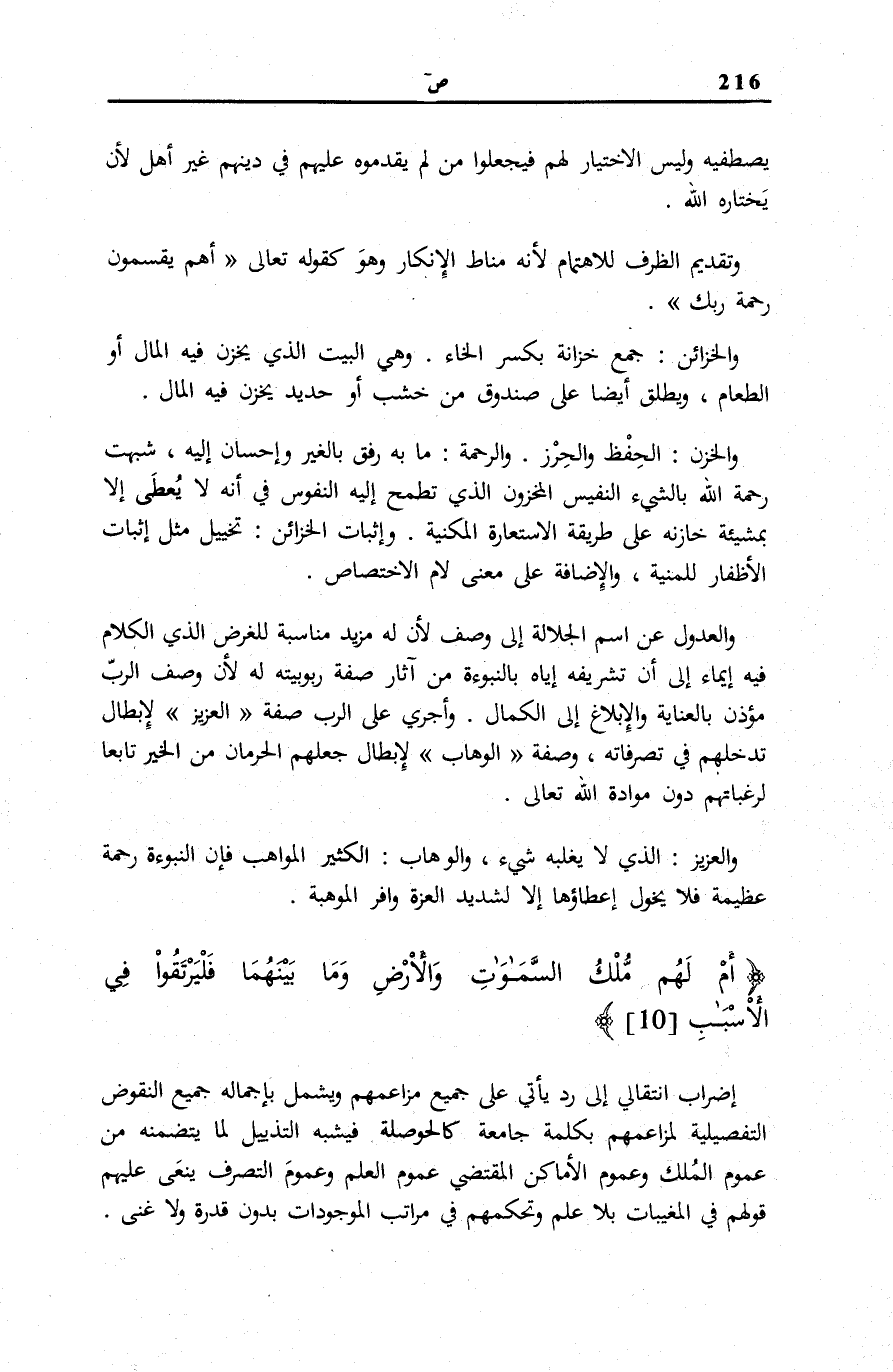 216 صۤ
يصطفيه وليس الاختيار لهم فيجعلوا من لم يقدموه عليهم في دينهم غير أهل لأن
يَختاره الله .
وتقديم الظرف للاهتمام لأنه مناط الإِنكار وهوَ كقوله تعالى « أهم يقسمون
رحمة ربك » .
والخزائن : جمع خزانة بكسر الخاء . وهي البيت الذي يخزن فيه المال أو
الطعام ، ويطلق أيضا على صندوق من خشب أو حديد يخزن فيه المال .
والخزن : الحِفْظ والحِرْز . والرحمة : ما به رفق بالغير وإحسان إليه ، شبهت
رحمة الله بالشيء النفيس المخزون الذي تطمح إليه النفوس في أنه لا يُعطَى إلا
بمشيئة خازنه على طريقة الاستعارة المكنية . وإثبات الخزائن : تخييل مثل إثبات
الأظفار للمنية ، والإِضافة على معنى لام الاختصاص .
والعدول عن اسم الجلالة إلى وصف لأن له مزيد مناسبة للغرض الذي الكلام
فيه إيماء إلى أن تشريفه إياه بالنبوءة من آثار صفة ربوبيته له لأن وصف الربّ
مؤذن بالعناية والإِبلاغ إلى الكمال . وأجري على الرب صفة « العزيز » لإِبطال
تدخلهم في تصرفاته ، وصفة « الوهاب » لإِبطال جعلهم الحرمان من الخير تابعا
لرغباتهم دون موادة الله تعالى .
والعزيز : الذي لا يغلبه شيء ، والوهاب : الكثير المواهب فإن النبوءة رحمة
عظيمة فلا يخول إعطاؤها إلا لشديد العزة وافر الموهبة .
﴿ أَمْ لَهُم مُّلْكُ السَّمَـٰوَٰتِ وَالْأَرْضِ وَمَا بَيْنَهُمَا فَلْيَرْتَقُواْ فِي
الْأَسْبَـٰبِ [10] ﴾
إضراب انتقالي إلى رد يأتي على جميع مزاعمهم ويشمل بإجماله جميع النقوض
التفصيلية لمزاعمهم بكلمة جامعة كالحوصلة فيشبه التذييل لما يتضمنه من
عموم المُلك وعموم الأماكن المقتضي عموم العلم وعمومَ التصرف ينعَى عليهم
قولهم في المغيبات بلا علم وتحكمهم في مراتب الموجودات بدون قدرة ولا غنى .